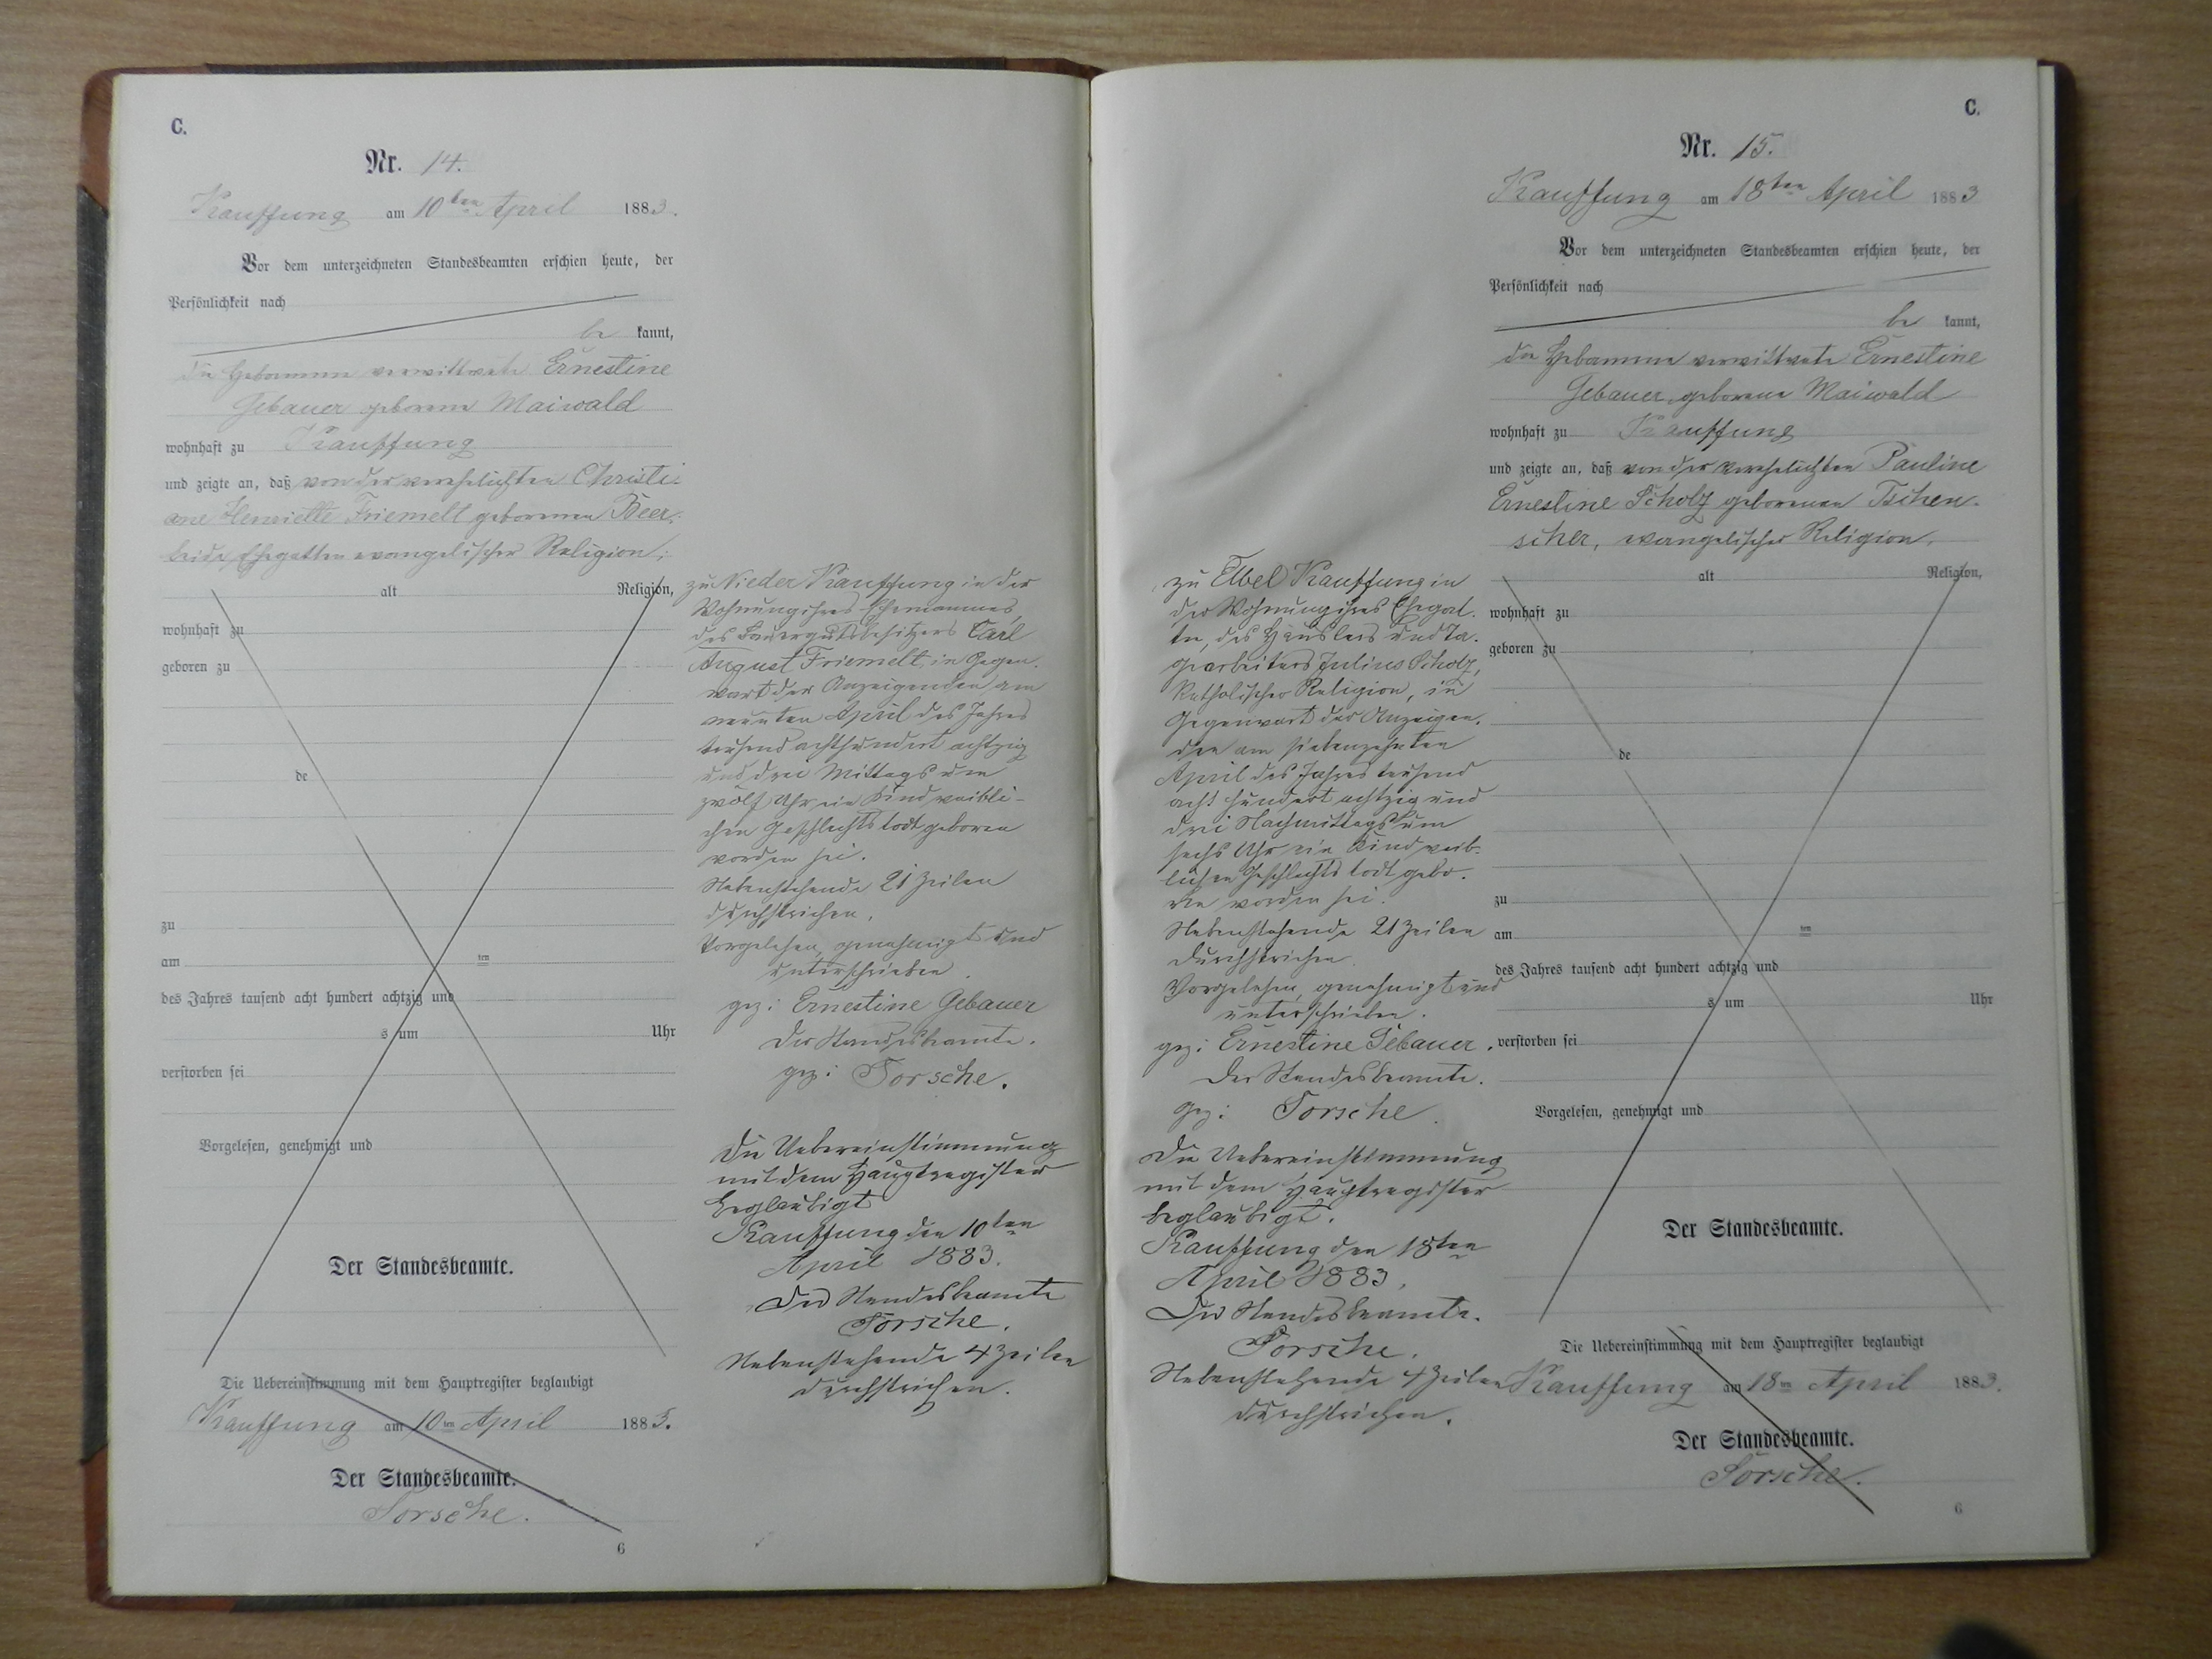 C.
Nr. 14.
Kauffung am 10ten April 1883.
Vor dem unterzeichneten Standesbeamten erschien heute, der
Persönlichkeit nach
be kannt,
die Hebamme verwittwete Ernestine
Gebauer geborene Maiwald
wohnhaft zu Kauffung
und zeigte an, daß von der verehelichten Christi-
ane Henriette Friemelt geborenen Beer,
beide Ehegatten evangelischer Religion,
alt Religion,
wohnhaft zu
geboren zu
de
zu
am ten
des Jahres tausend acht hundert achtzig und
s um Uhr
verstorben sei
Vorgelesen, genehmigt und
Der Standesbeamte.
Die Uebereinstimmung mit dem Hauptregister beglaubigt
Kauffung am 10ten April 1883.
Der Standesbeamte.
Torsche.
6
zu Nieder Kauffung in der
Wohnung ihres Ehemannes,
des Bauergutsbesitzers Carl
August Friemelt in Gegen-
wart der Anzeigenden am
neunten April des Jahres
tausend achthundert achtzig
und drei Mittags um
zwölf Uhr ein Kind weibli-
chen Geschlechts todt geboren
worden sei.
Nebenstehende 21 Zeilen
durchstrichen.
Vorgelesen, genehmigt und
unterschrieben.
gez: Ernestine Gebauer
Der Standesbeamte.
gez: Torsche.
Die Uebereinstimmung
mit dem Hauptregister
beglaubigt
Kauffung den 10ten
April 1883.
Der Standesbeamte
Torsche.
Nebenstehende 4 Zeilen
durchstrichen.
C.
Nr. 15.
Kauffung am 18ten April 1883
Vor dem unterzeichneten Standesbeamten erschien heute, der
Persönlichkeit nach
be kannt,
die Hebamme verwittwete Ernestine
Gebauer, geborene Maiwald
wohnhaft zu Kauffung
und zeigte an, daß von der verehelichten Pauline
Ernestine Scholz geborenen Tschen-
scher, evangelischer Religion,
zu Kauffung in
der Wohnung ihres Ehegat-
ten, des Häuslers und Ta-
gearbeiters Julius Scholz,
katholischer Religion, in
Gegenwart der Anzeigen-
den am siebenzehnten
April des Jahres tausend
acht hundert achtzig und
drei Nachmittags um
sechs Uhr ein Kind weib-
lichen Geschlechts todt gebo-
ren worden sei.
Nebenstehende 21 Zeilen
durchstrichen.
Vorgelesen, genehmigt und
unterschrieben.
gez: Ernestine Gebauer.
Der Standesbeamte.
gez: Torsche.
Die Uebereinstimmung
mit dem Hauptregister
beglaubigt.
Kauffung den 18ten
April 1883.
Der Standesbeamte.
Torsche.
Nebenstehende 4 Zeilen
durchstrichen.
alt Religion,
wohnhaft zu
geboren zu
de
zu
am ten
des Jahres tausend acht hundert achtzig und
s um Uhr
verstorben sei
Vorgelesen, genehmigt und
Der Standesbeamte.
Die Uebereinstimmung mit dem Hauptregister beglaubigt
Kauffung am 18ten April 1883.
Der Standesbeamte.
Torsche.
6